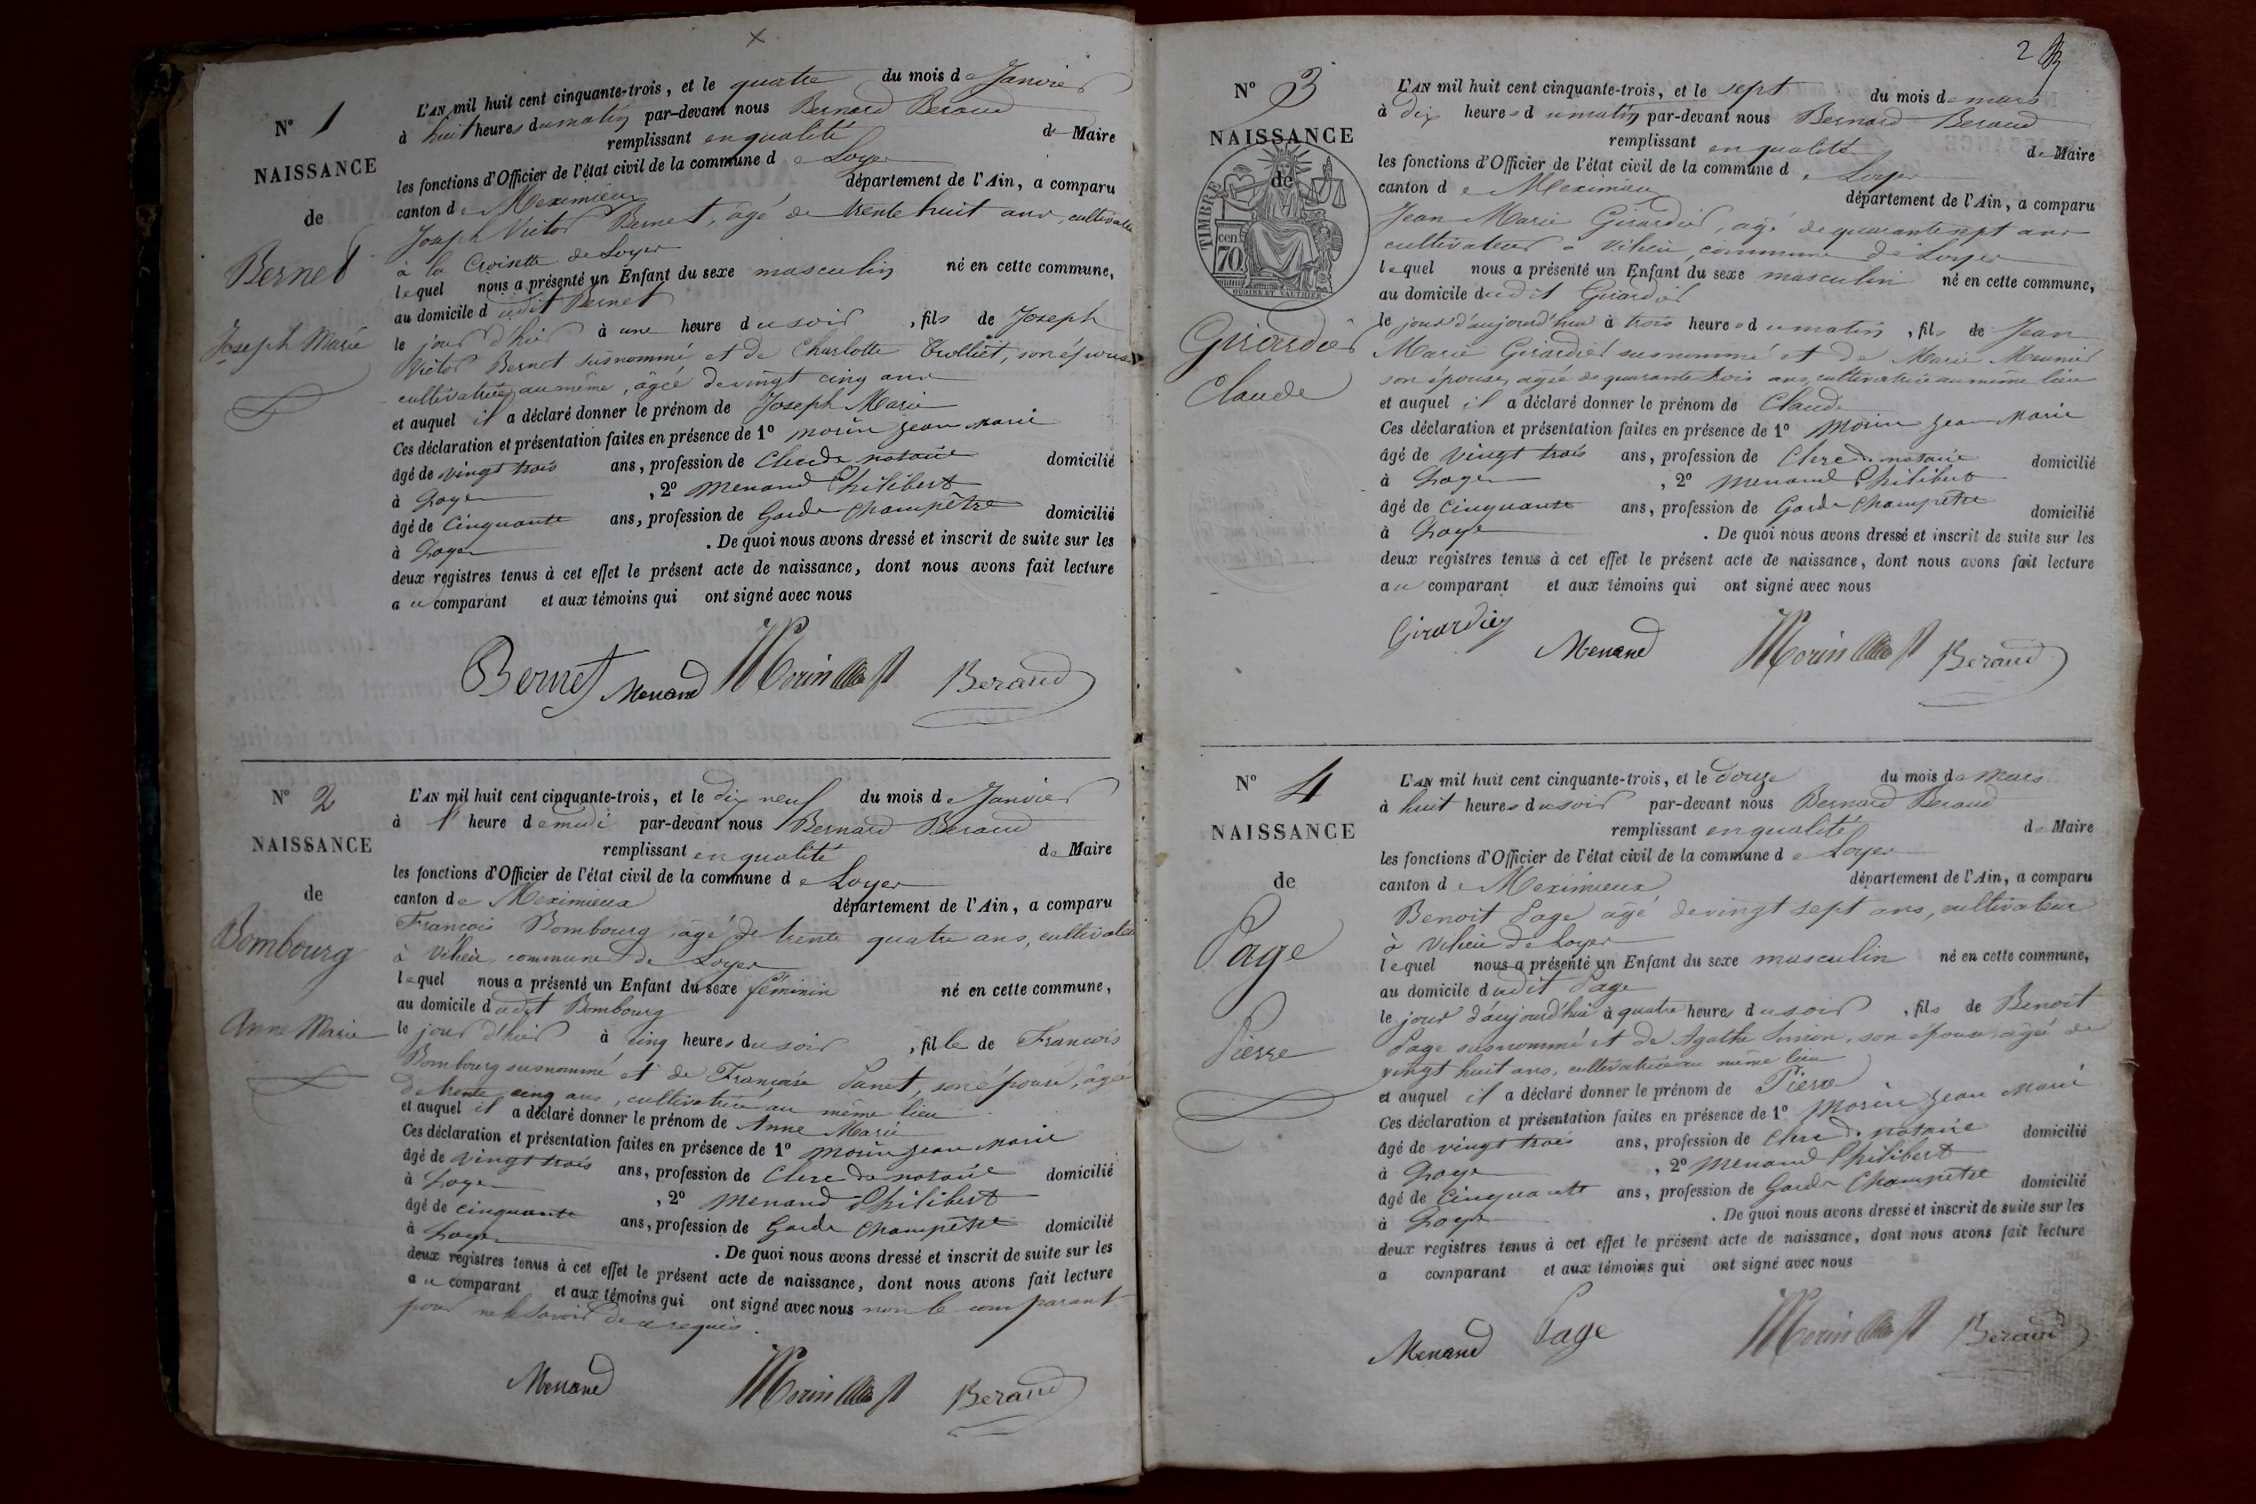 N° 1
NAISSANCE
de
Bernet
Joseph Marie
L'AN mil huit cent cinquante-trois, et le quatre du mois de Janvier
à huit heures du matin par-devant nous Bernard Beraud
remplissant en qualité de Maire
les fonctions d'Officier de l'état civil de la commune de Loyes
canton de Meximieux département de l'Ain, a comparu
Joseph Victor Bernet, âgé de trente huit ans, cultivateur
à la Croisette de Loyes
lequel nous a présenté un Enfant du sexe masculin né en cette commune,
au domicile dudit Bernet
le jour d'hier à une heure du soir, fils de Joseph
Victor Bernet susnommé et de Charlotte Trolliet, son épouse
cultivatrice au même, âgée de vingt cinq ans
et auquel il a déclaré donner le prénom de Joseph Marie
Ces déclaration et présentation faites en présence de 1° Morin Jean Marie
âgé de vingt trois ans, profession de Clerc de notaire domicilié
à Loyes, 2° Menand Philibert
âgé de Cinquante ans, profession de Garde Champêtre domicilié
à Loyes. De quoi nous avons dressé et inscrit de suite sur les
deux registres tenus à cet effet le présent acte de naissance, dont nous avons fait lecture
au comparant et aux témoins qui ont signé avec nous
Bernet Menand Morin Beraud
N° 2
NAISSANCE
de
Bombourg
Anne Marie
L'AN mil huit cent cinquante-trois, et le dix neuf du mois de Janvier
à 1 heure de midi par-devant nous Bernard Beraud
remplissant en qualité de Maire
les fonctions d'Officier de l'état civil de la commune de Loyes
canton de Meximieux département de l'Ain, a comparu
François Bombourg, âgé de trente quatre ans, cultivateur
à Vilieu commune de Loyes
lequel nous a présenté un Enfant du sexe féminin né en cette commune,
au domicile dudit Bombourg
le jour d'hier à cinq heures du soir, fille de François
Bombourg susnommé et de Françoise Panet, son épouse, âgée
de trente cinq ans, cultivatrice au même lieu
et auquel il a déclaré donner le prénom de Anne Marie
Ces déclaration et présentation faites en présence de 1° Morin Jean Marie
âgé de vingt trois ans, profession de Clerc de notaire domicilié
à Loyes, 2° Menand Philibert
âgé de cinquante ans, profession de Garde Champêtre domicilié
à Loyes. De quoi nous avons dressé et inscrit de suite sur les
deux registres tenus à cet effet le présent acte de naissance, dont nous avons fait lecture
au comparant et aux témoins qui ont signé avec nous non le comparant
pour ne le savoir de ce requis.
Menand Morin Beraud
2
N° 3
NAISSANCE
de
TIMBRE
cen. 70
Girardier
Claude
L'AN mil huit cent cinquante-trois, et le sept du mois de mars
à dix heures du matin par-devant nous Bernard Beraud
remplissant en qualité de Maire
les fonctions d'Officier de l'état civil de la commune de Loyes
canton de Meximieux département de l'Ain, a comparu
Jean Marie Girardier, âgé de quarante sept ans
cultivateur à Vilieu, commune de Loyes
lequel nous a présenté un Enfant du sexe masculin né en cette commune,
au domicile dudit Girardier
le jour d'aujourd'hui à trois heures du matin, fils de Jean
Marie Girardier susnommé et de Marie Meunier
son épouse, âgée de quarante trois ans, cultivatrice au même lieu
et auquel il a déclaré donner le prénom de Claude
Ces déclaration et présentation faites en présence de 1° Morin Jean Marie
âgé de vingt trois ans, profession de Clerc de notaire domicilié
à Loyes, 2° Menand Philibert
âgé de Cinquante ans, profession de Garde Champêtre domicilié
à Loyes. De quoi nous avons dressé et inscrit de suite sur les
deux registres tenus à cet effet le présent acte de naissance, dont nous avons fait lecture
au comparant et aux témoins qui ont signé avec nous
Girardier Menand Morin Beraud
N° 4
NAISSANCE
de
Page
Pierre
L'AN mil huit cent cinquante-trois, et le douze du mois de mars
à huit heures du soir par-devant nous Bernard Beraud
remplissant en qualité de Maire
les fonctions d'Officier de l'état civil de la commune de Loyes
canton de Meximieux département de l'Ain, a comparu
Benoit Page âgé de vingt sept ans, cultivateur
à Vilieu de Loyes
lequel nous a présenté un Enfant du sexe masculin né en cette commune,
au domicile dudit Page
le jour d'aujourd'hui à quatre heures du soir, fils de Benoit
Page susnommé et de Agathe Simon, son épouse, âgée de
vingt huit ans, cultivatrice au même lieu
et auquel il a déclaré donner le prénom de Pierre
Ces déclaration et présentation faites en présence de 1° Morin Jean Marie
âgé de vingt trois ans, profession de Clerc de notaire domicilié
à Loyes, 2° Menand Philibert
âgé de Cinquante ans, profession de Garde Champêtre domicilié
à Loyes. De quoi nous avons dressé et inscrit de suite sur les
deux registres tenus à cet effet le présent acte de naissance, dont nous avons fait lecture
a comparant et aux témoins qui ont signé avec nous
Menand Page Morin Beraud